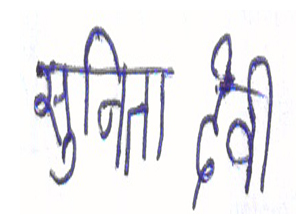 सुनिता देवी